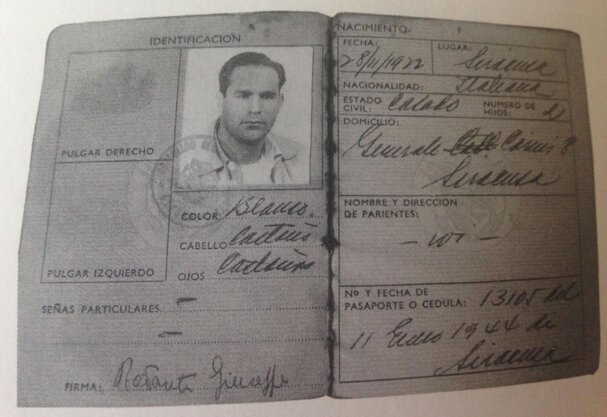 IDENTIFICACION
PULGAR DERECHO
PULGAR IZQUIERDO
COLOR: Blanco.
CABELLO Castaño
OJOS Castaños
SEÑAS PARTICULARES -
-
FIRMA: Giuseppe
NACIMIENTO: 1
FECHA: LUGAR:
28/11/1922 Siracusa
NACIONALIDAD: Italiana
ESTADO CIVIL: Casado NUMERO DE HIJOS: 2
DOMICILIO:
Generale
Siracusa
NOMBRE Y DIRECCION
DE PARIENTES:
Nº Y FECHA DE
PASAPORTE O CEDULA: 13105 del
11 Enero 1944 de
Siracusa